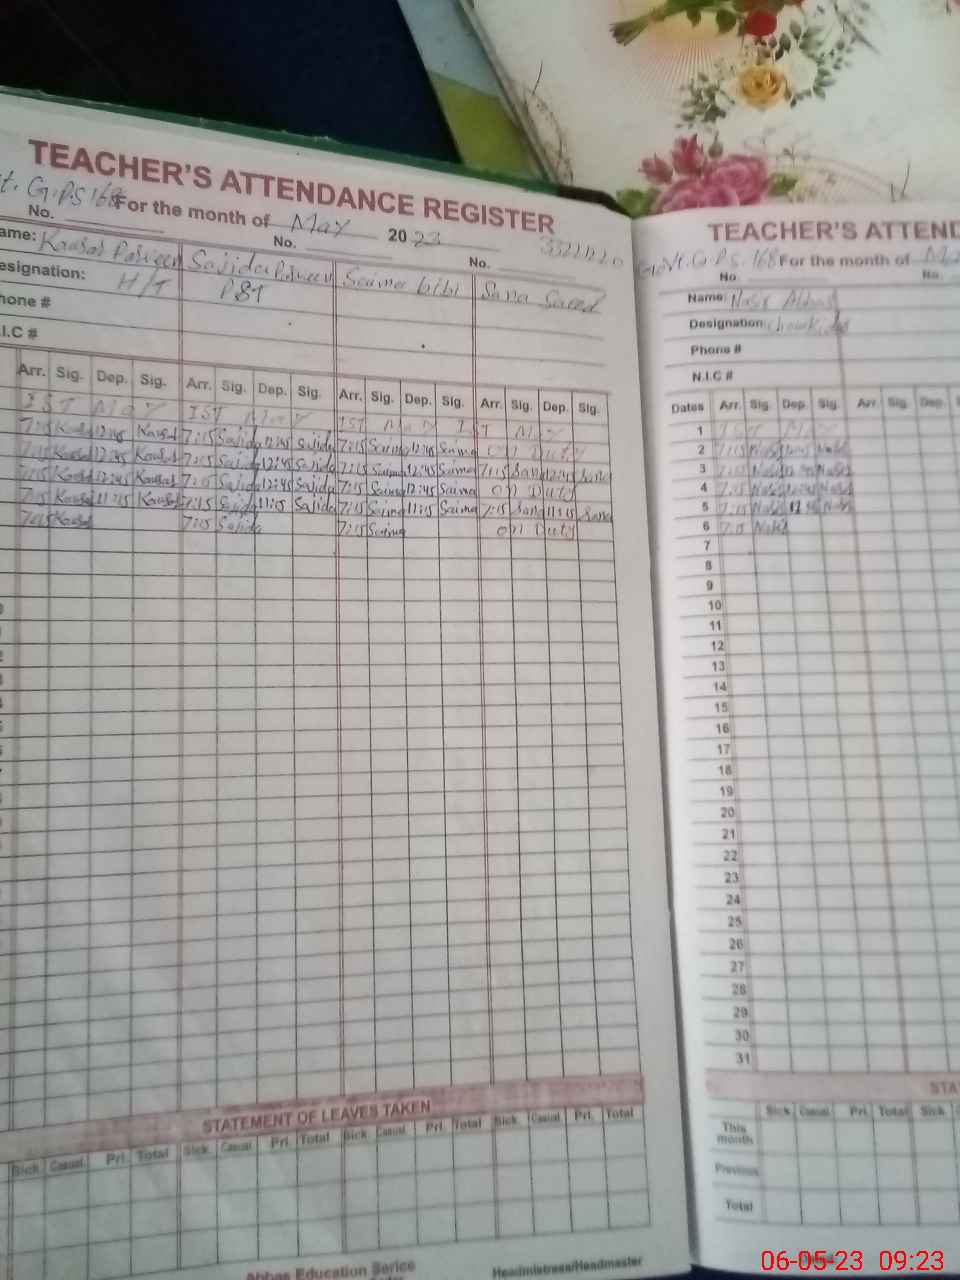 TEACHER'S ATTENDANCE REGISTER
t. G.PS 168 For the month of May 2023
No. No. No. 3321120
ame: Kausar Parveen Sajida Parveen Saima bibi Sana Saeed
esignation: H/T PST
hone #
.I.C #
Arr. Sig. Dep. Sig. Arr. Sig. Dep. Sig. Arr. Sig. Dep. Sig. Arr. Sig. Dep. Sig.
IST May IST May IST May IST May
7:15 Kausar 12:45 Kausar 7:15 Sajida 12:45 Sajida 7:15 Saima 12:45 Saima on Duty
7:15 Kausar 12:45 Kausar 7:15 Sajida 12:45 Sajida 7:15 Saima 12:45 Saima 7:15 Sana 12:45 Sana
7:15 Kausar 12:45 Kausar 7:15 Sajida 12:45 Sajida 7:15 Saima 12:45 Saima on Duty
7:15 Kausar 11:15 Kausar 7:15 Sajida 11:15 Sajida 7:15 Saima 11:15 Saima 7:15 Sana 11:15 Sana
7:15 Kausar 7:15 Sajida 7:15 Saima on Duty
STATEMENT OF LEAVES TAKEN
Sick Casual Pri. Total Sick Casual Pri. Total Sick Casual Pri. Total Sick Casual Pri. Total
Abbas Education Serice
Headmistress/Headmaster
TEACHER'S ATTEND
Govt. G.PS. 168 For the month of Ma
No. No.
Name: Nasir Abbas
Designation: chowkidar
Phone #
N.I.C #
Dates Arr. Sig. Dep. Sig. Arr. Sig. Dep.
1 IST May
2 7:15 Nasir Nasir
3 7:15 Nasir 12:45 Nasir
4 7:15 Nasir 12:45 Nasir
5 7:15 Nasir Nasir
6 7:15 Nasir
7
8
9
10
11
12
13
14
15
16
17
18
19
20
21
22
23
24
25
26
27
28
29
30
31
STA
Sick Casual Pri. Total Sick
This month
Previous
Total
06-05-23 09:23